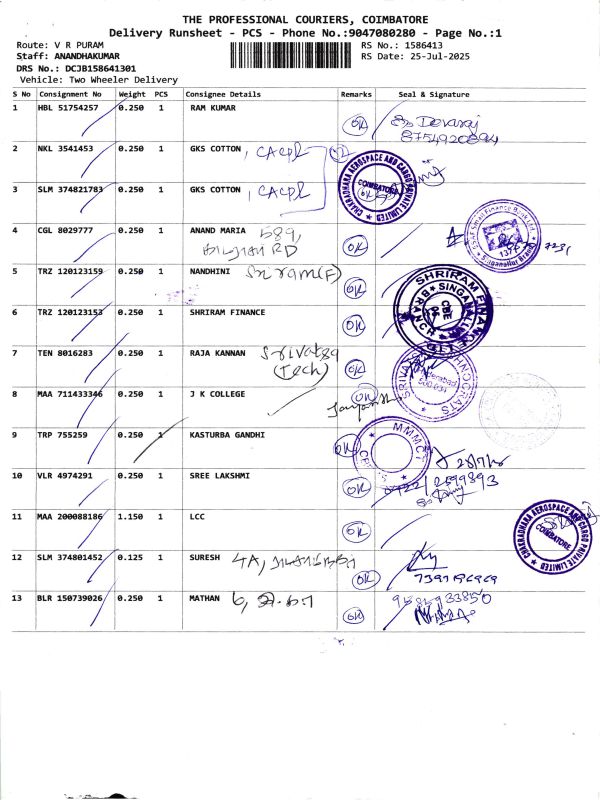 THE PROFESSIONAL COURIERS, COIMBATORE
Delivery Runsheet - PCS - Phone No.:9047080280 - Page No.:1
Route: V R PURAM
RS No.: 1586413
Staff: ANANDHAKUMAR
RS Date: 25-Jul-2025
DRS No.: DCJB158641301
Vehicle: Two Wheeler Delivery
S No Consignment No Weight PCS Consignee Details Remarks Seal & Signature
1 HBL 51754257 0.250 1 RAM KUMAR OK Devaraj
8754920894
2 NKL 3541453 0.250 1 GKS COTTON, CACPL
3 SLM 374821783 0.250 1 GKS COTTON, CACPL
CHAKRADHARA AEROSPACE AND CARGO PRIVATE LIMITED
COIMBATORE
4 CGL 8029777 0.250 1 ANAND MARIA 589, OK
RD
ESAF Small Finance Bank Ltd.
Singanallur Branch
5 TRZ 120123159 0.250 1 NANDHINI Sri ram (F) OK
6 TRZ 120123153 0.250 1 SHRIRAM FINANCE OK
SHRIRAM FINANCE LTD
SINGANALLUR BRANCH
CBE
7 TEN 8016283 0.250 1 RAJA KANNAN Srivatsa OK
(Tech)
8 MAA 711433346 0.250 1 J K COLLEGE OK
9 TRP 755259 0.250 1 KASTURBA GANDHI OK
MMMCT
10 VLR 4974291 0.250 1 SREE LAKSHMI OK 0422 2599893
11 MAA 200088186 1.150 1 LCC OK
CHAKRADHARA AEROSPACE AND CARGO PRIVATE LIMITED
COIMBATORE
12 SLM 374801452 0.125 1 SURESH 4A, OK
13 BLR 150739026 0.250 1 MATHAN 6, OK